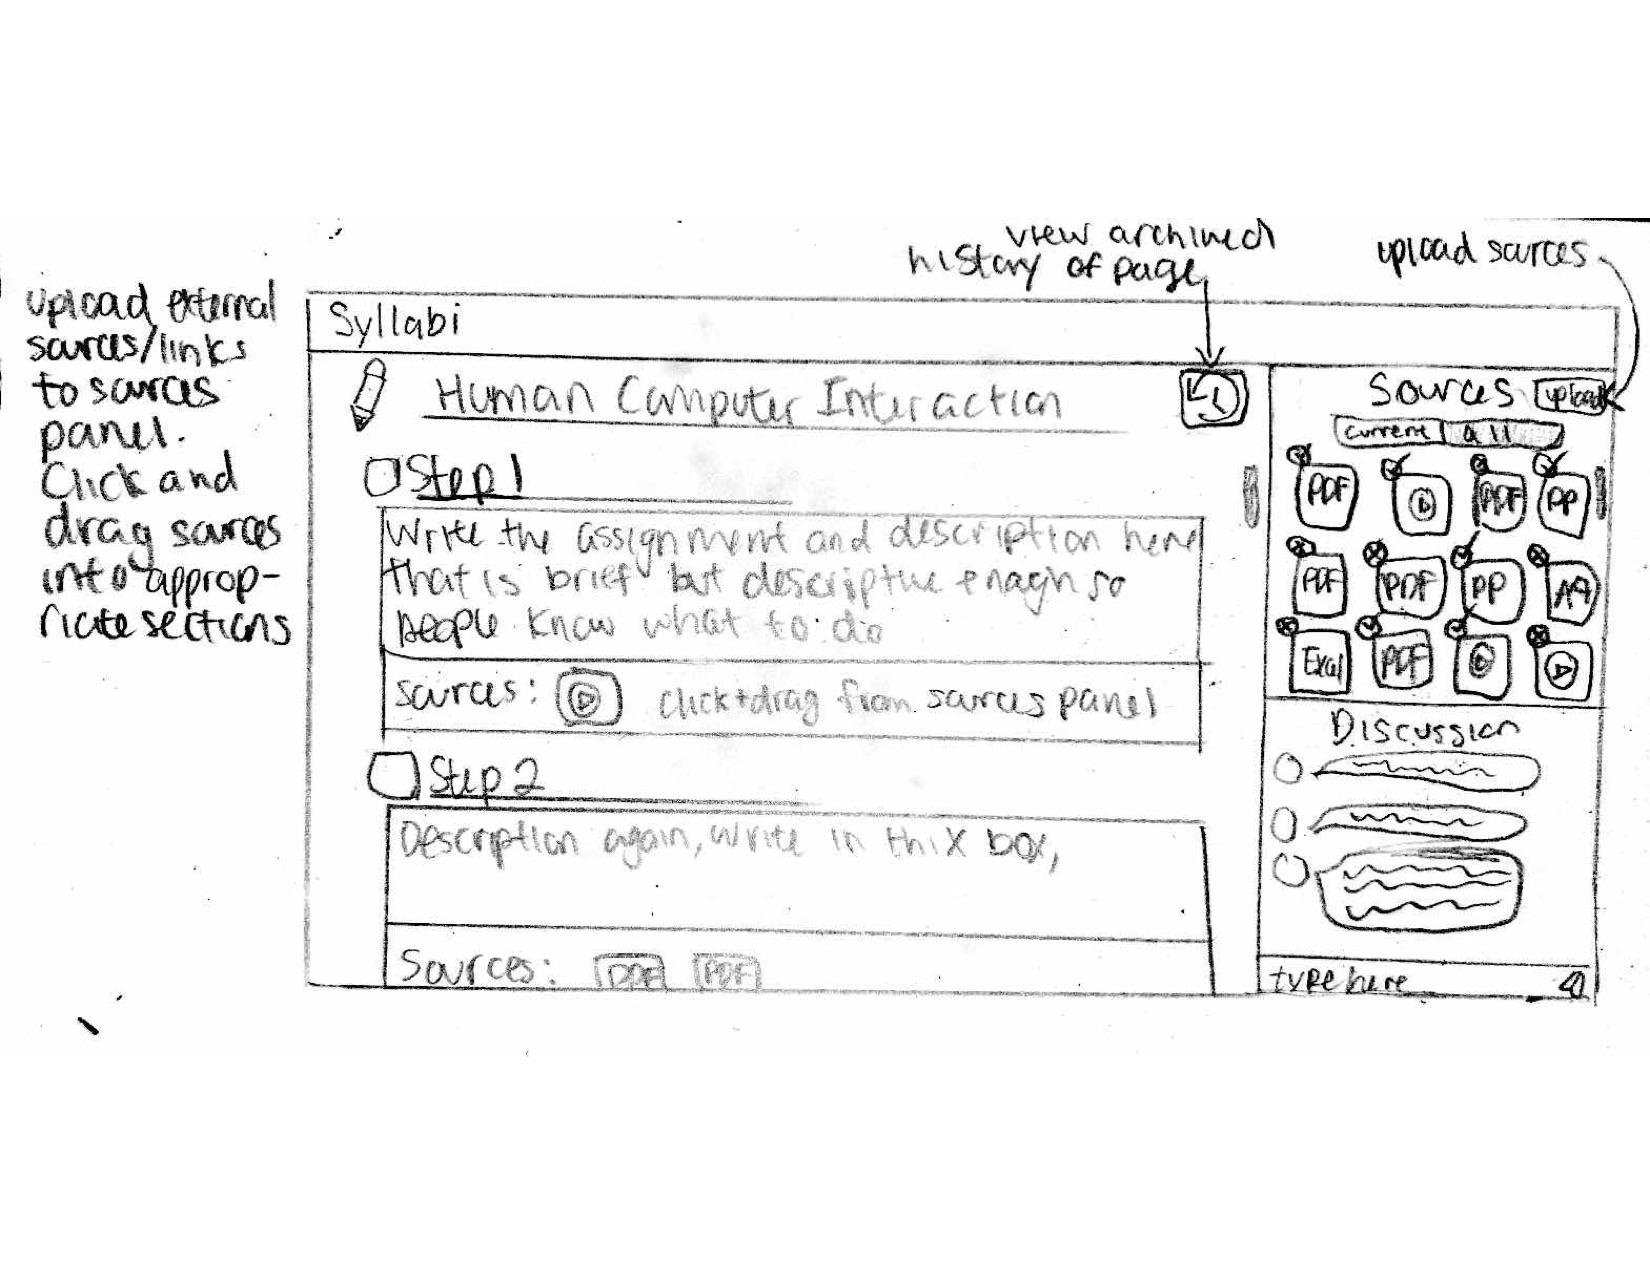 view archived
history of page
upload sources
upload external
sources/links
to sources
panel.
Click and
drag sources
into approp-
riate sections
Syllabi
Human Computer Interaction
Step 1
Write the assignment and description here
that is brief but descriptive enough so
people know what to do
sources: click+drag from sources panel
Step 2
Description again, write in this box,
Sources: PDF PDF
Sources upload
current all
PDF PDF PP
PDF PDF PP
PDF
Discussion
type here